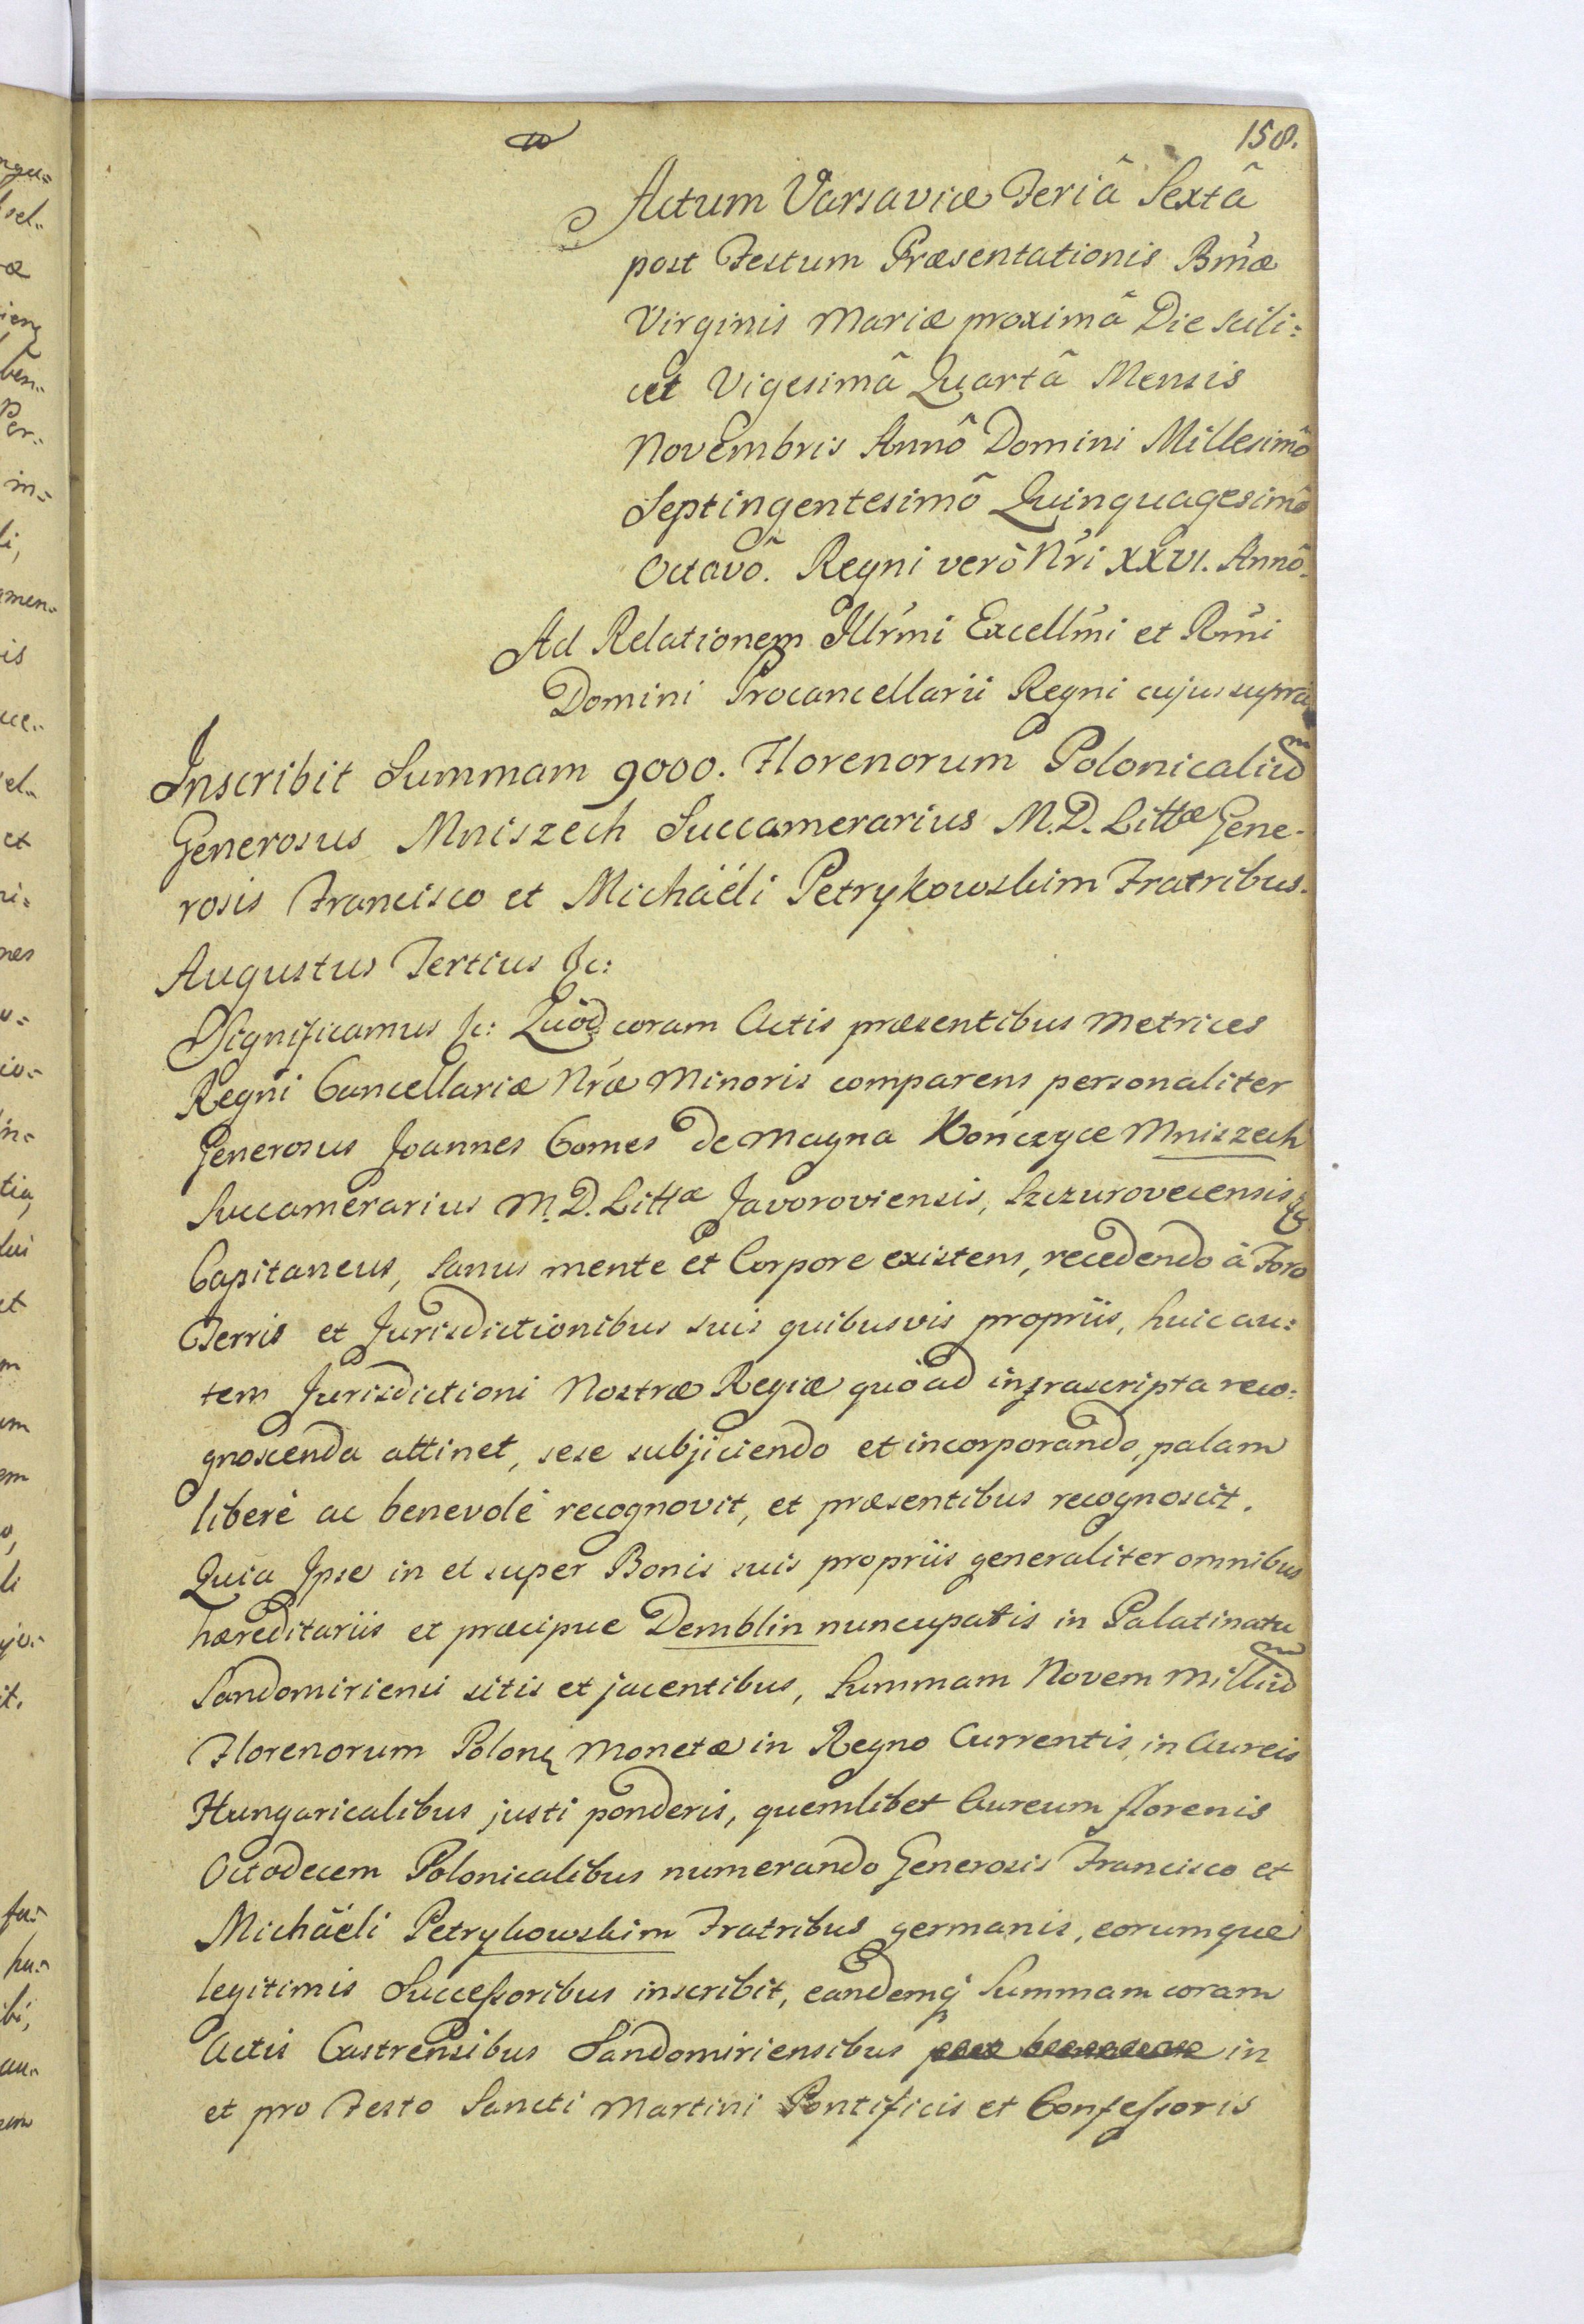 158.
Actum Varsaviæ Feriâ Sextâ
post Festum Præsentationis Bm̃æ
Virginis Mariæ proximâ Die scili:
cet Vigesimâ Quartâ Mensis
Novembris Annô Domini Millesimô
Septingentesimô Quinquagesimô
Octavô. Regni verò Nr̃i XXVI. Annô.
Ad Relationem Illr̃mi Excellm̃i et Rm̃i
Domini Procancellarii Regni cujus supra
Inscribit Summam 9000. Florenorum Polonicaliũ
Generosus Mniszech Succamerarius M.D. Littæ Gene-
rosis Francisco et Michäéli Petrykowskim Fratribus.
Augustus Tertius &c:
Significamus &c: Quôd coram Actis præsentibus Metrices
Regni Cancellariæ Nr̃æ Minoris comparens personaliter
Generosus Joannes Comes de Magna Kończyce Mniszech
Succamerarius M.D. Littæ Javoroviensis, Szczurovecensis &c
Capitaneus, sanus mente et Corpore existens, recedendo à Foro
Terris et Jurisdictionibus suis quibusvis propriis, huic au:
tem Jurisdictioni Nostræ Regiæ quò ad infrascripta reco:
gnoscenda attinet, sese subjiciendo et incorporando, palam
liberè ac benevolè recognovit, et præsentibus recognoscit.
Quia Ipse in et super Bonis suis propriis generaliter omnibus
hæreditariis et præcipue Demblin nuncupatis in Palatinatu
Sandomiriensi sitis et jacentibus, Summam Novem Milliũ
Florenorum Polonę Monetæ in Regno Currentis, in Aureis
Hungaricalibus justi ponderis, quemlibet Aureum florenis
Octodecem Polonicalibus numerando Generosis Francisco et
Michäéli Petrykowskim Fratribus germanis, eorumque
legitimis Successoribus inscribit, eandemq̃ Summam coram
Actis Castrensibus Sandomiriensibus in
et pro Festo Sancti Martini Pontificis et Confessoris